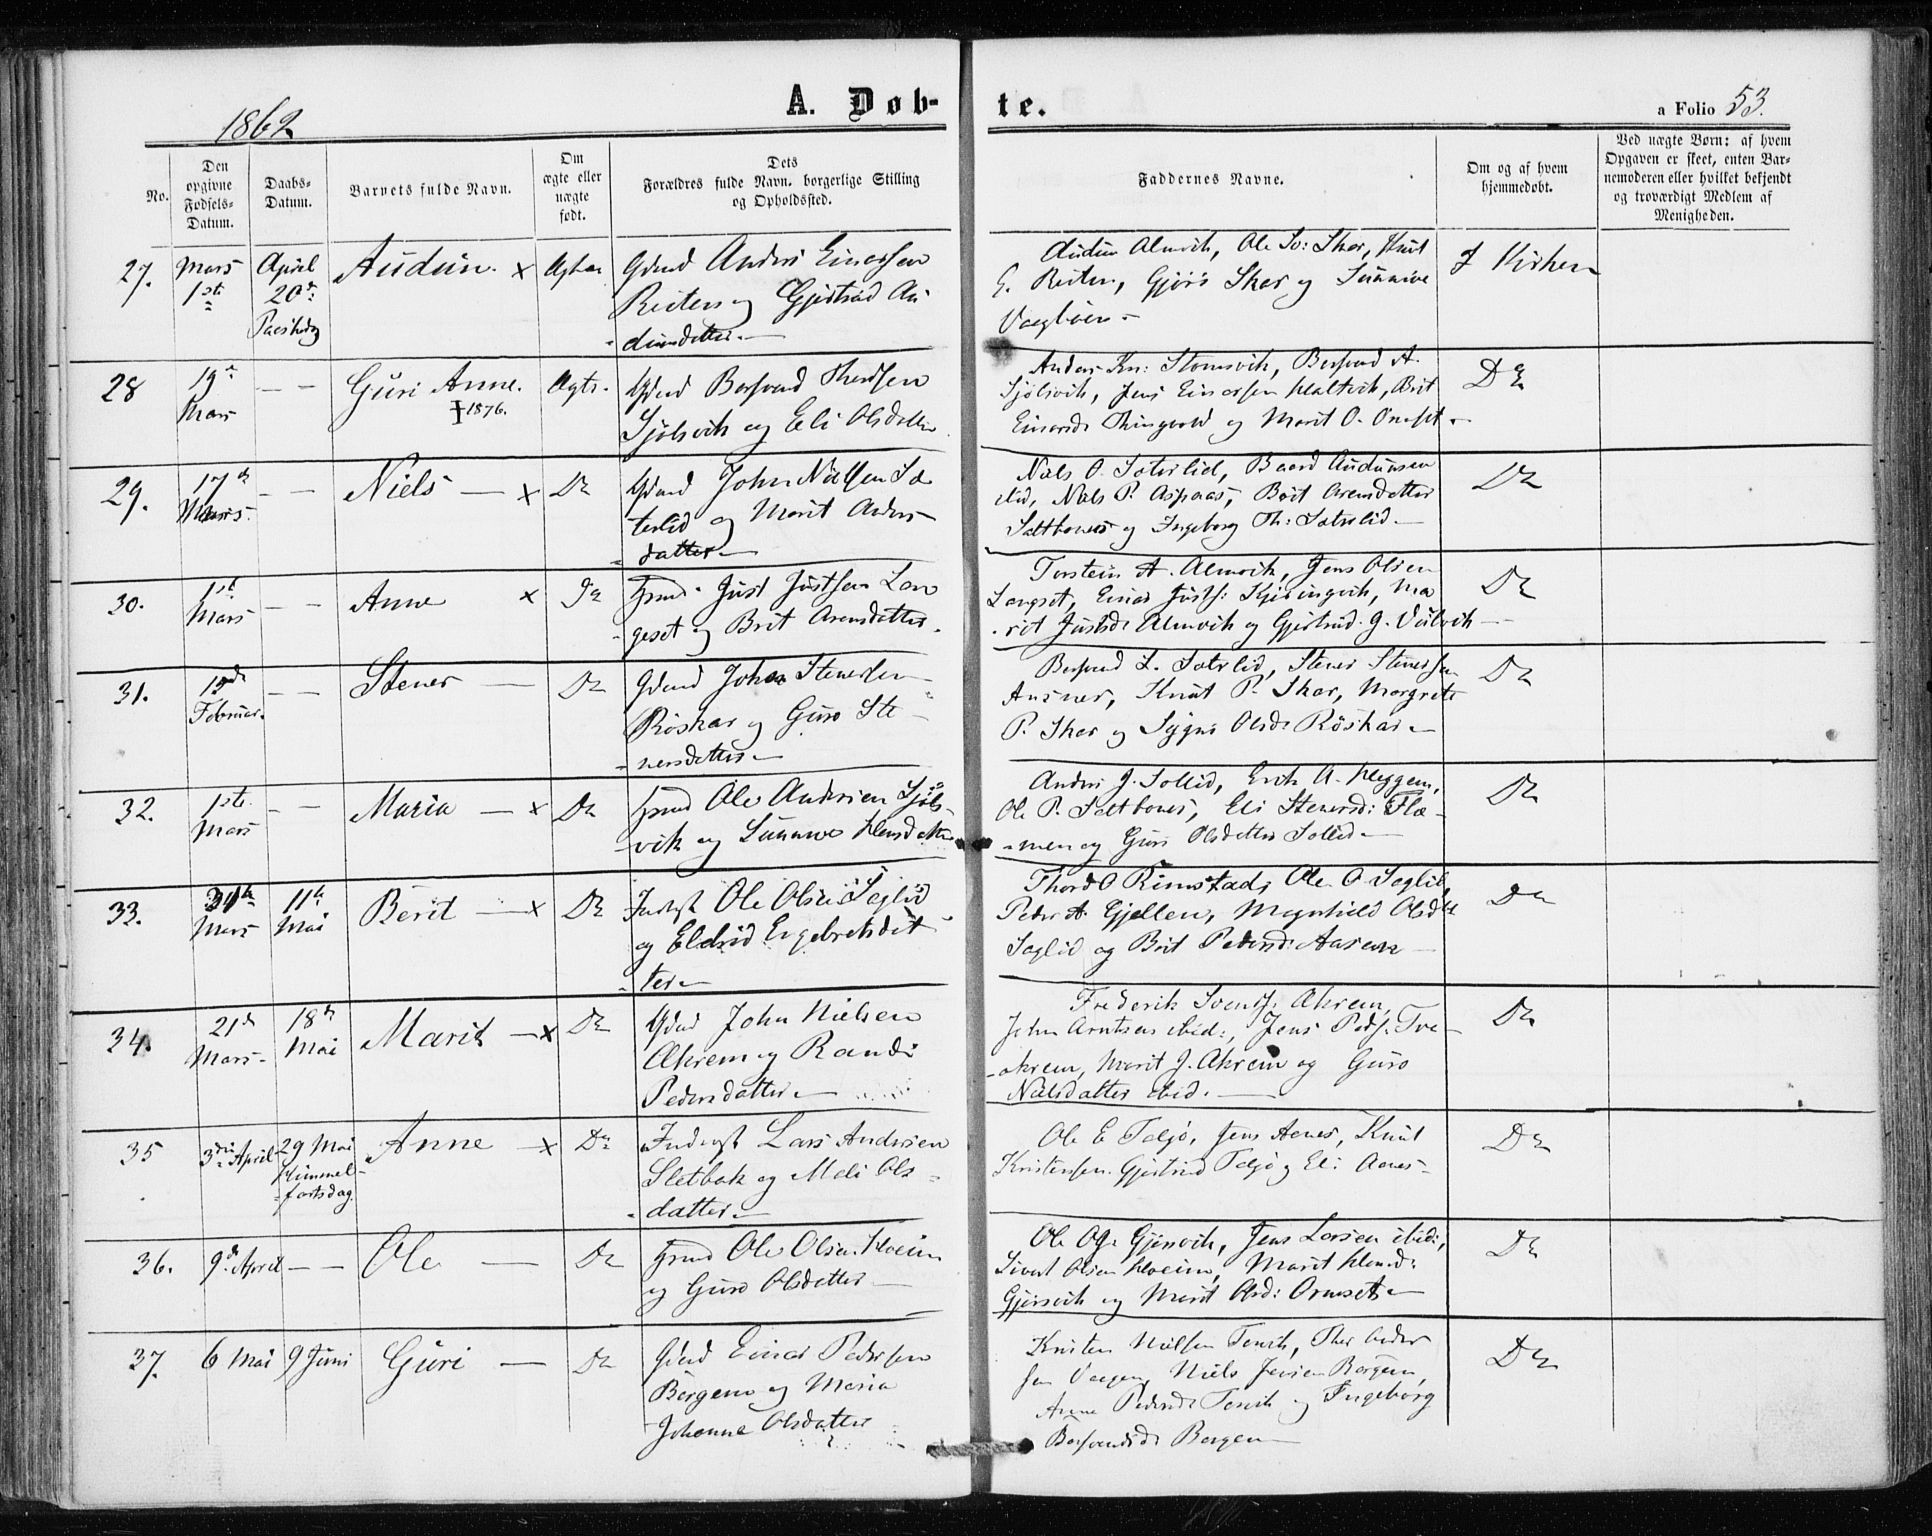 1862
A. Døb-
te.
a Folio 53.
No.
Den
opgivne
Fødsels-
Datum.
Daabs-
Datum.
Barnets fulde Navn.
Om
ægte eller
uægte
født.
Dets
Forældres fulde Navn, borgerlige Stilling
og Opholdssted.
Faddernes Navne.
Om og af hvem
hjemmedøbt.
Ved uægte Børn: af hvem
Opgaven er skeet, enten Bar-
nemoderen eller hvilket bekjendt
og troværdigt Medlem af
Menigheden.
27.
Mars
1ste
April
20de
Paaskedag
Audun. x
Gbmd Anders Einersen
Reiten og Gjertrud Au-
dunsdatter
Audun Almvik, Ole Sv: Skar, Knut
E. Reiten, Gjøri Skar og Sunnive
Vaagbøen
I Kirken
28
19de
Mars
— —
Guri Anne.
†1876.
Ægte.
Sjølsvik og Eli Olsdatter
Anders Kn: Stomsvik, A.
Sjølsvik, Jens Einersen, Brit
Einersd: Thingvold og Marit O.
Do
29.
17de
Mars
— —
Niels — x
Do
Gbmd John Nielsen Sæ-
terlid og Marit Anders-
datter
Niels O. Sæterlid, Baard Audunsen
ibid, Niels P. Aspnæs, Brit Arensdatter
Saltbones og Ingeborg Th: Sæterlid
Do
30.
1ste
Mars
— —
Anne x
Do
Just Justsen Lan-
geset og Brit Arensdatter
Torstein A. Almvik, Jens Olsen
Langset, Einer Justs: Kjelingvik, Ma-
rit Justsd: Almvik og Gjertrud J.
Do
31.
15de
Februar.
— —
Stener —
Do
Gbmd Johan Stenersen
Røskar og Guro Ste-
nersdatter
L. Sæterlid, Stener Stenersen
Knut P. Skar, Margrete
P. Skar og Olsd: Røskar
Do
32.
1ste
Mars
— —
Maria — x
Do
Ole Andersen Sjøls-
vik og Sunnive
Anders J. Sollid, Erik A. Meggem,
Ole P. Saltbones, Eli Stenersd: Flæ-
men og Guri Olsdatter Sollid
Do
33.
Mars
11te
Mai
Berit — x
Do
Inderst Ole Olsen Seglid
og Eldrid Engebretsdat-
ter
Thord O Rimstad, Ole O. Seglid,
Peder A. Gjellen, Magnhild Olsdt
Seglid og Brit Pedersd: Aasen
Do
34.
21de
Mars
18de
Mai
Marit — x
Do
Gbmd John Nielsen
Akrem og Randi
Pedersdatter
Frederik Svends: Akrem,
John Arntsen ibid:, Jens Peds: Tve-
akrem, Marit J. Akrem og Guro
Nielsdatter ibid.
Do
35
3die April
29 Mai
Himmel-
fartsdag.
Anne — x
Do
Inderst Lars Andersen
Sletbak og Mali Ols-
datter
Ole E Taljø, Jens Aenes, Knut
Kristensen, Gjertrud Taljø og Eli Aenes
Do
36.
9de April
— —
Ole —
Do
Ole Olsen Hoeim
og Guro Olsdatter
Ole Ols: Gjersvik, Jens Larsen ibid:,
Sivert Olsen Hoeim, Marit
Gjersvik og Marit Olsd: Ormset
Do
37.
6 Mai
9 Juni
Guri —
Do
Gbmd Einer Pedersen
Bergem og Maria
Johanna Olsdatter
Kristen Nielsen Torvik, Ander-
sen Vaagen, Niels Jensen Bergem,
Anne Pedersd: Torvik og Ingeborg
Bergem
Do